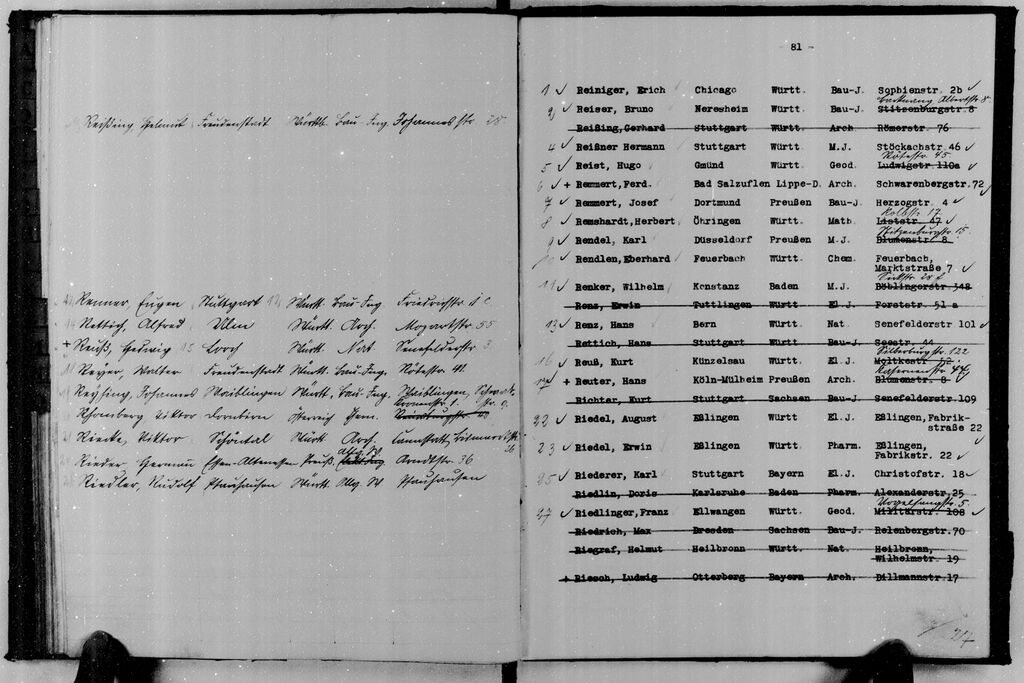 Reißing, Helmut Freudenstadt Württ. Bau-Ing. Johannesstr. 28
Renner, Eugen Stuttgart Württ. Bau-Ing Friedrichstr. 1c
Rettich, Alfred Ulm Württ. Arch. Mozartstr. 55
+ Reuß, Hedwig Lorch Württ. Nat. Senefelderstr. 3
Reyer, Walter Freudenstadt Württ. Bau-Ing. Rötestr. 41
Reysing, Johannes Waiblingen Württ. Bau-Ing. Waiblingen,
Rhomberg Viktor Dornbirn Österreich Chem.
Riecke, Viktor Schöntal Württ. Arch. Cannstatt, Bismarckstr. 36
Rieder, Hermann Essen-Altenessen Preuß. Arndtstr. 36
Riedler, Rudolf Pfauhausen Württ. Allg. W Pfauhausen
- 81 -
1 ✓ Reiniger, Erich Chicago Württ. Bau-J. Sophienstr. 2b ✓
Backnang Albertstr. 8
2 ✓ Reiser, Bruno Neresheim Württ. Bau-J. Stitzenburgstr. 8
Reißing, Gerhard Stuttgart Württ. Arch Römerstr. 76
4 ✓ Reißner Hermann Stuttgart Württ. M.J. Stöckachstr 46 ✓
Rötestr. 45
5 ✓ Reist, Hugo Gmünd Württ. Geod. Ludwigstr 110a ✓
6 ✓ + Remmert, Ferd. Bad Salzuflen Lippe-D. Arch. Schwarenbergstr. 72 ✓
7 ✓ Remmert, Josef Dortmund Preußen Bau-J. Herzogstr. 4 ✓
Kolbstr. 17
8 ✓ Remshardt, Herbert Öhringen Württ. Math. Liststr. 47 ✓
Stitzenburgstr. 15.
9 ✓ Rendel, Karl Düsseldorf Preußen M.J. Blumenstr 8
10 ✓ Rendlen, Eberhard Feuerbach Württ. Chem. Feuerbach,
Marktstraße 7 ✓
11 ✓ Renker, Wilhelm Konstanz Baden M.J. Böblingerstr 348
Renz, Erwin Tuttlingen Württ. El.J. Forststr. 51 a
13 ✓ Renz, Hans Bern Württ. Nat. Senefelderstr 101 ✓
Rettich, Hans Stuttgart Württ. Bau-J. Seestr. 44
Silberburgstr. 122
16 ✓ Reuß, Kurt Künzelsau Württ. El.J. Moltkestr
Kasernenstr. 44
17 ✓ + Reuter, Hans Köln-Mülheim Preußen Arch. Blumenstr. 8
Richter, Kurt Stuttgart Sachsen Bau-J. Senefelderstr. 109
22 ✓ Riedel, August Eßlingen Württ. El.J. Eßlingen, Fabrik-
straße 22
23 ✓ Riedel, Erwin Eßlingen Württ. Pharm. Eßlingen,
Fabrikstr. 22 ✓
25 ✓ Riederer, Karl Stuttgart Bayern El.J. Christofstr. 18 ✓
Riedlin, Doris Karlsruhe Baden Pharm. Alexanderstr. 25
Vogelsangstr. 5.
27 ✓ Riedlinger, Franz Ellwangen Württ. Geod. Militärstr. 108 ✓
Riedrich, Max Dresden Sachsen Bau-J Relenbergstr. 70
Riegraf, Helmut Heilbronn Württ. Nat. Heilbronn,
Wilhelmstr. 19
+ Riesch, Ludwig Otterberg Bayern Arch. Dillmannstr. 17